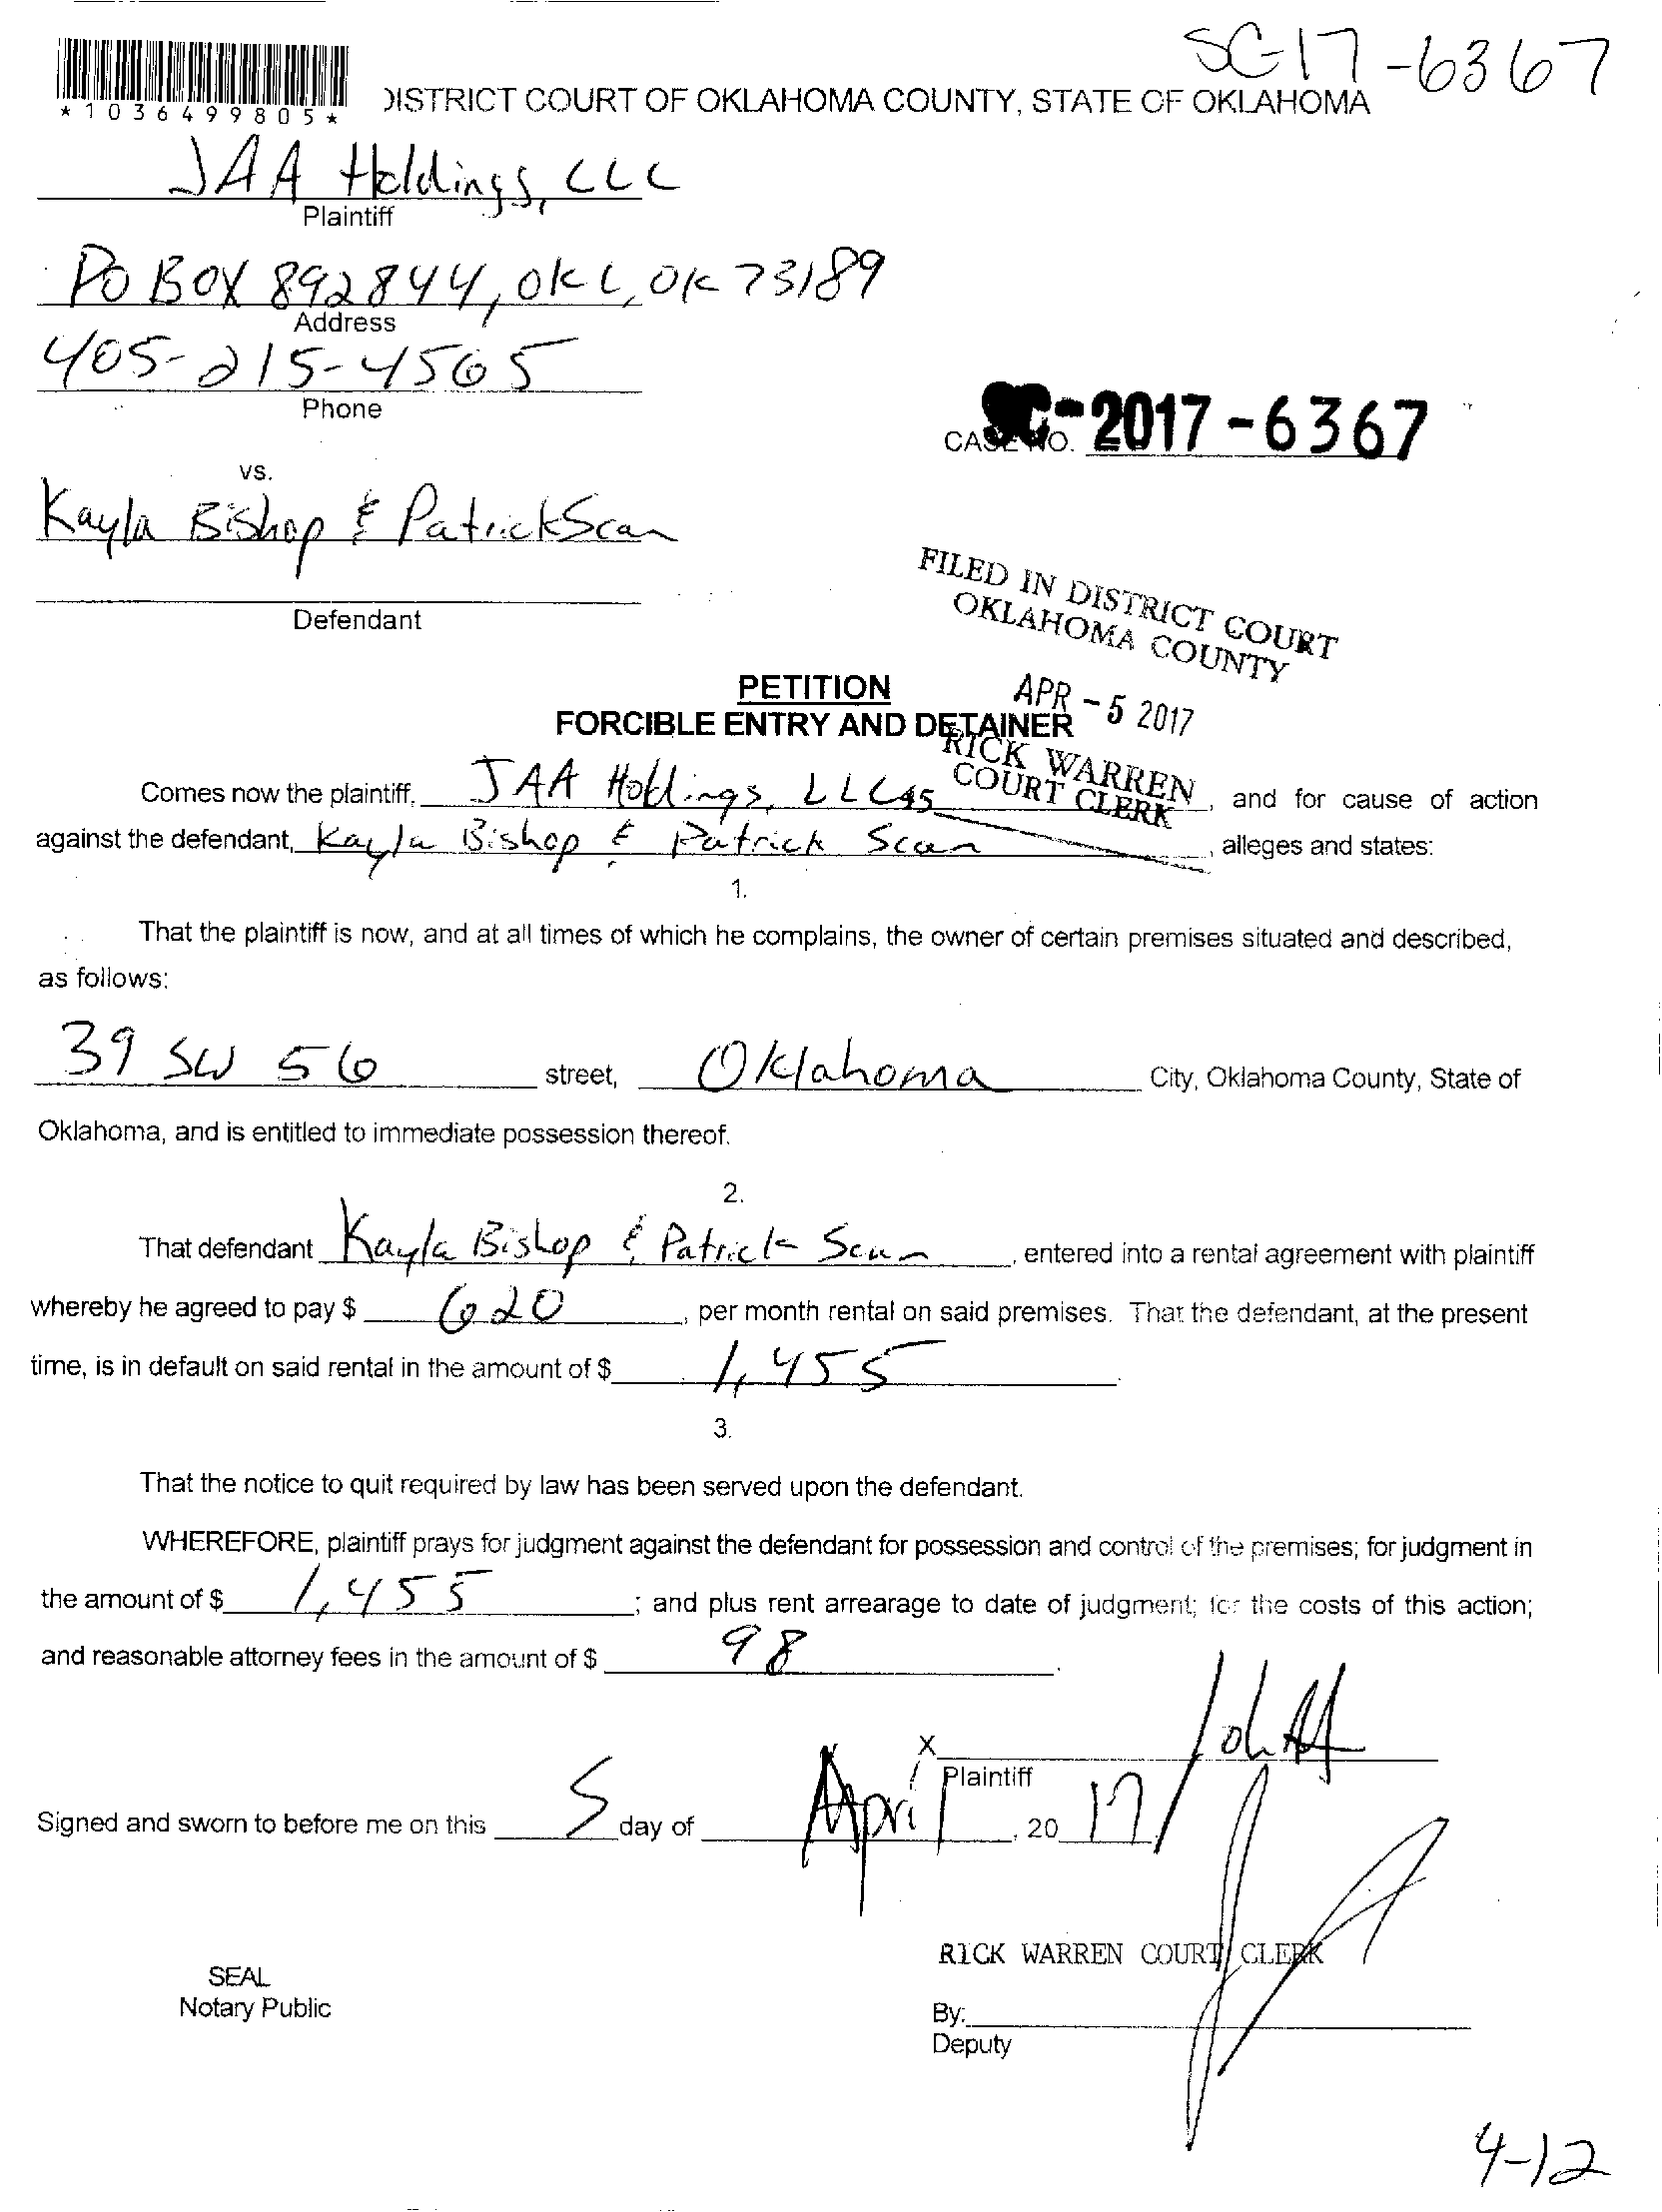 SC-17-6367
*1036499805*
DISTRICT COURT OF OKLAHOMA COUNTY, STATE OF OKLAHOMA
JAA Holdings, LLC
Plaintiff
PO BOX 892844, OKC, OK 73189
Address
405-215-4565
Phone
CASE NO. SC-2017-6367
vs.
Kayla Bishop & Patrick Scan
Defendant
FILED IN DISTRICT COURT
OKLAHOMA COUNTY
APR - 5 2017
RICK WARREN
COURT CLERK
PETITION
FORCIBLE ENTRY AND DETAINER
Comes now the plaintiff, JAA Holdings, LLC , and for cause of action
against the defendant, Kayla Bishop & Patrick Scan , alleges and states:
1.
That the plaintiff is now, and at all times of which he complains, the owner of certain premises situated and described,
as follows:
39 SW 56 street, Oklahoma City, Oklahoma County, State of
Oklahoma, and is entitled to immediate possession thereof.
2.
That defendant Kayla Bishop & Patrick Scan , entered into a rental agreement with plaintiff
whereby he agreed to pay $ 620 , per month rental on said premises. That the defendant, at the present
time, is in default on said rental in the amount of $ 1,455 .
3.
That the notice to quit required by law has been served upon the defendant.
WHEREFORE, plaintiff prays for judgment against the defendant for possession and control of the premises; for judgment in
the amount of $ 1,455 ; and plus rent arrearage to date of judgment; for the costs of this action;
and reasonable attorney fees in the amount of $ 98 .
X
Plaintiff
Signed and sworn to before me on this 5 day of April , 20 17
RICK WARREN COURT CLERK
SEAL
Notary Public
By:
Deputy
4-12